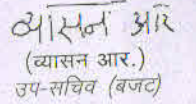 व्यासन आर
(व्यासन आर.)
उप-सचिव (बजट)